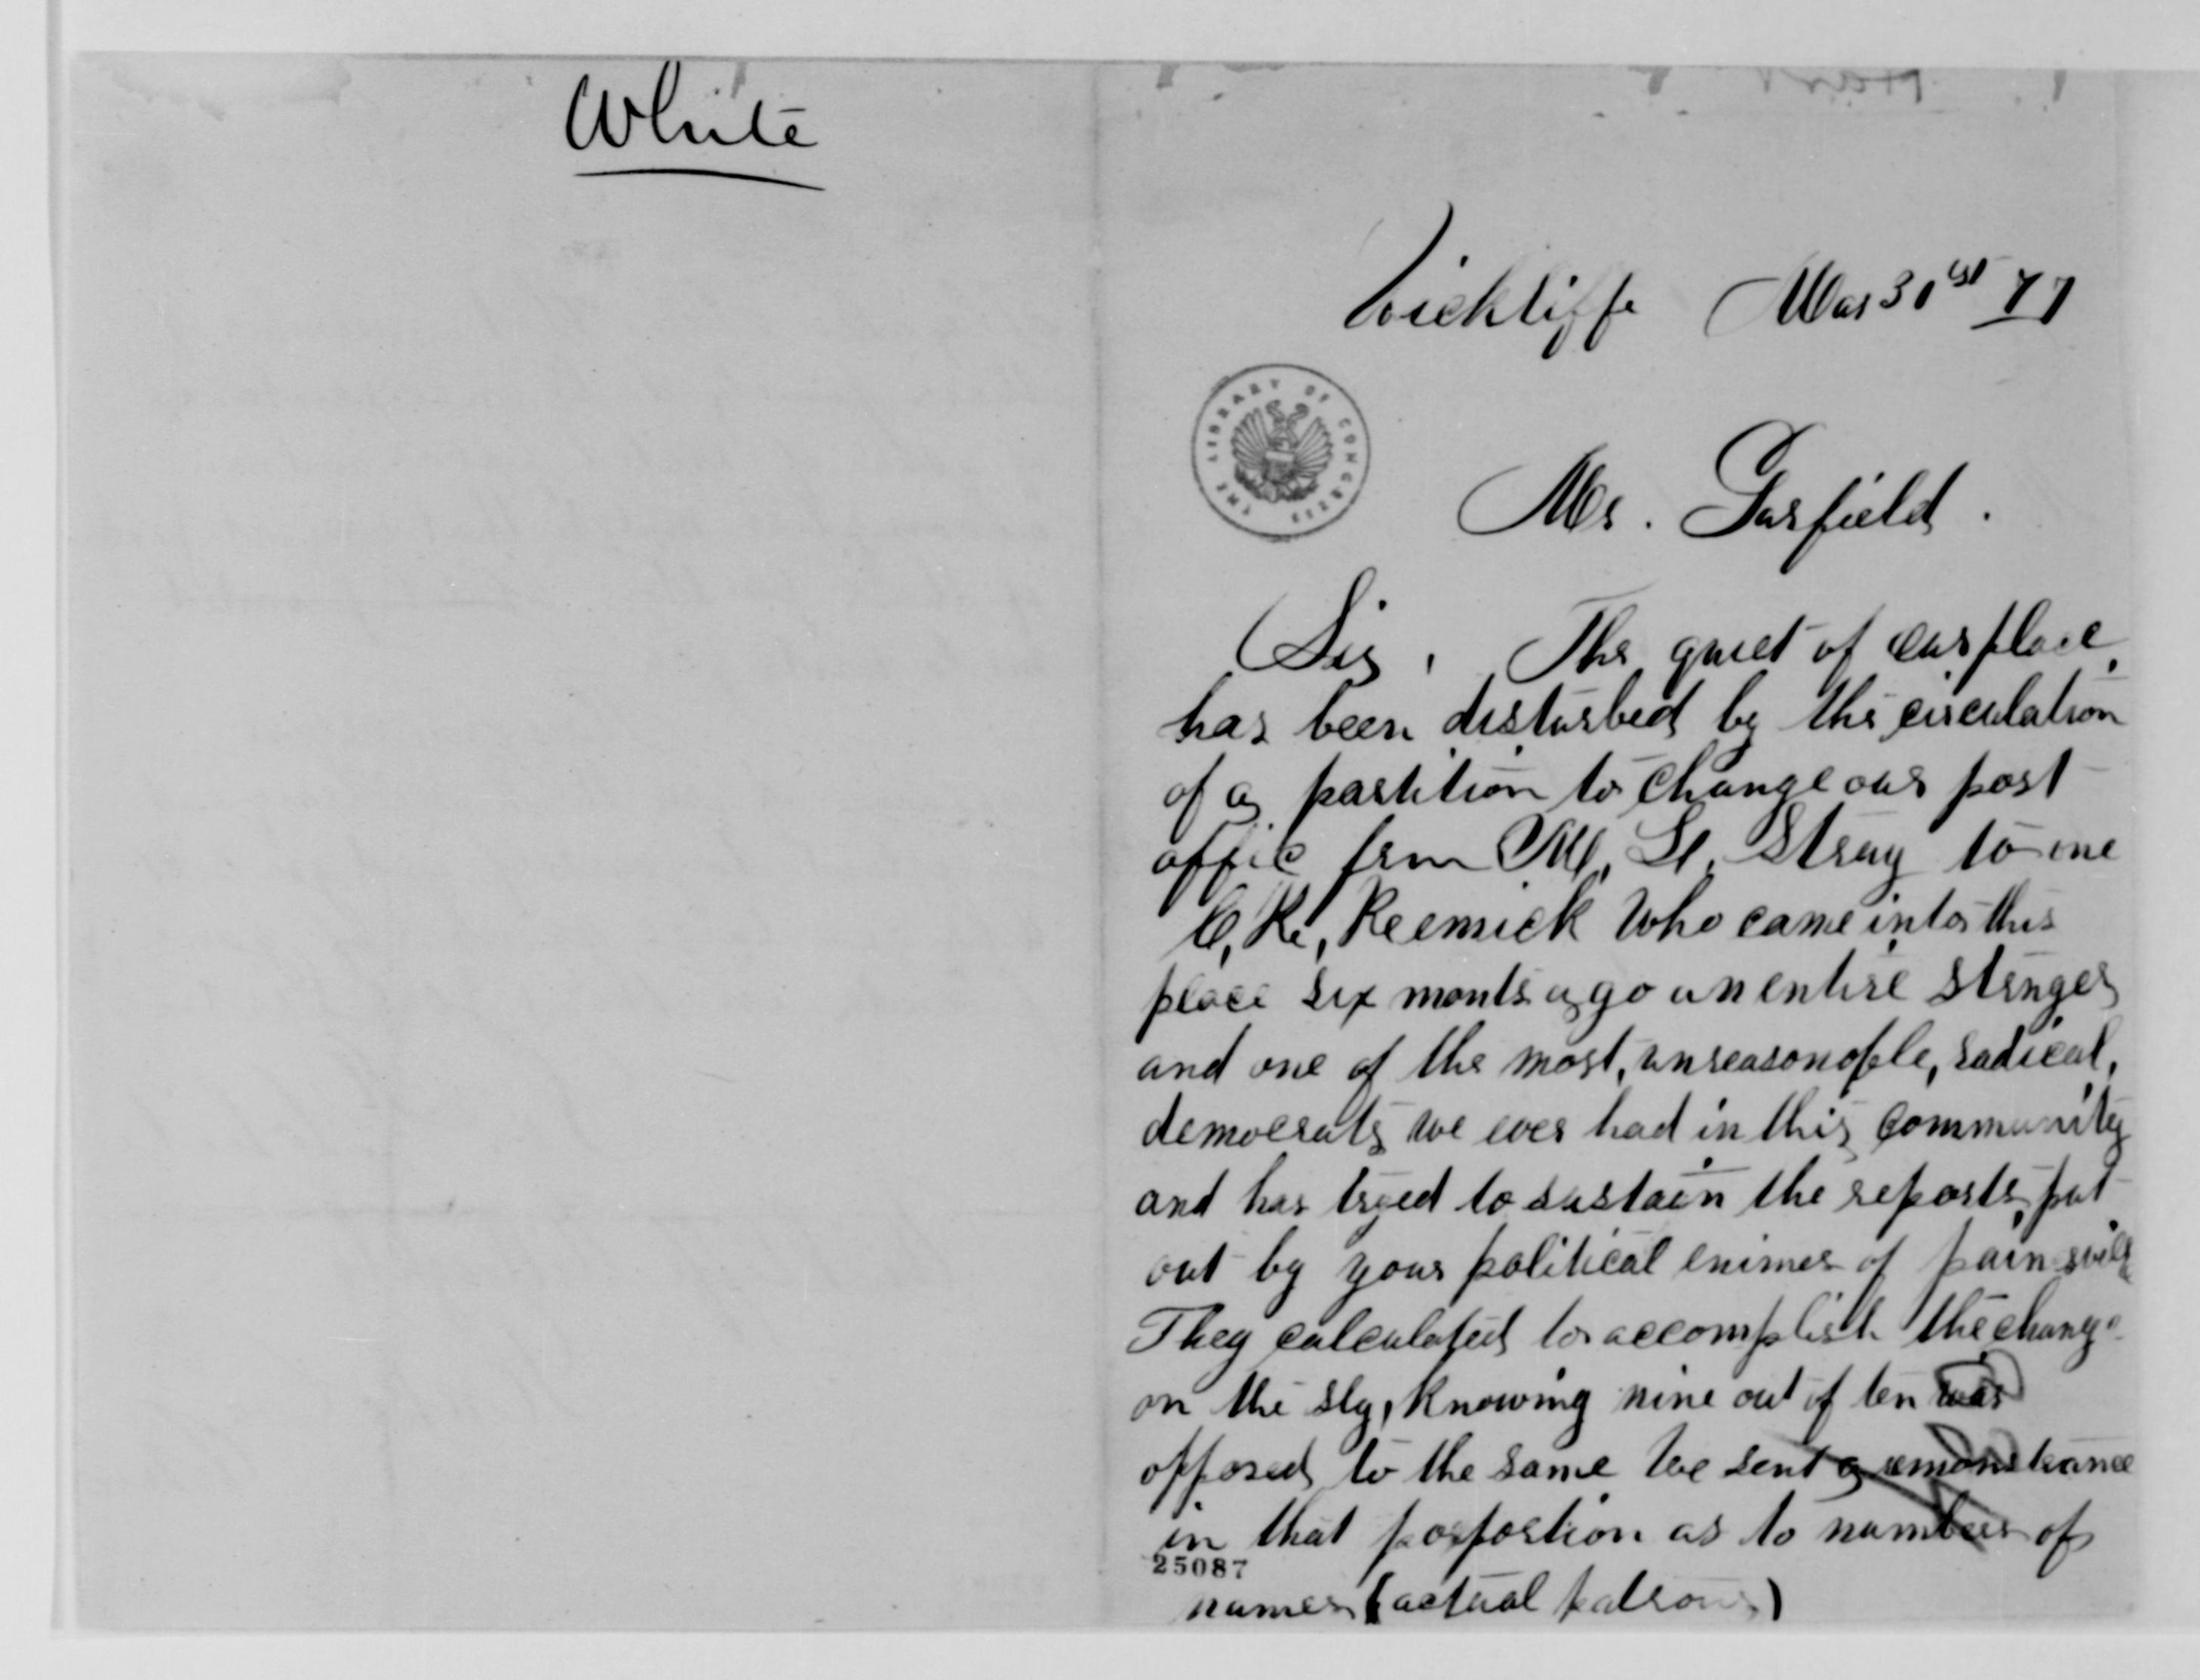 White
Wickliffe Mar 31st 77
THE LIBRARY OF CONGRESS
Mr. Garfield.
Sir, The quiet of our place,
has been disturbed by the circulation
of a partition to change our post
offic frm M, H, Stray to one
C, R, Reemick Who came into this
place six monts ago an entire strnger
and one of the most, unreasonable, radical,
democrats we ever had in this community
and has tryed to sustain the reports put
out by your political enimes of painsvill
They calculated to accomplish the change
on the sly, knowing nine out of ten was
opposed to the same We sent a remonstrance
in that porportion as to numbers of
25087
names (actual patrons)